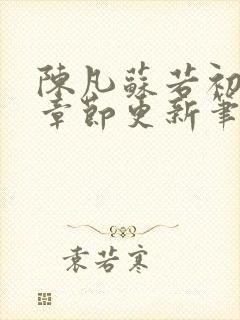 陳凡蘇若初
章節更新筆
袁若寒